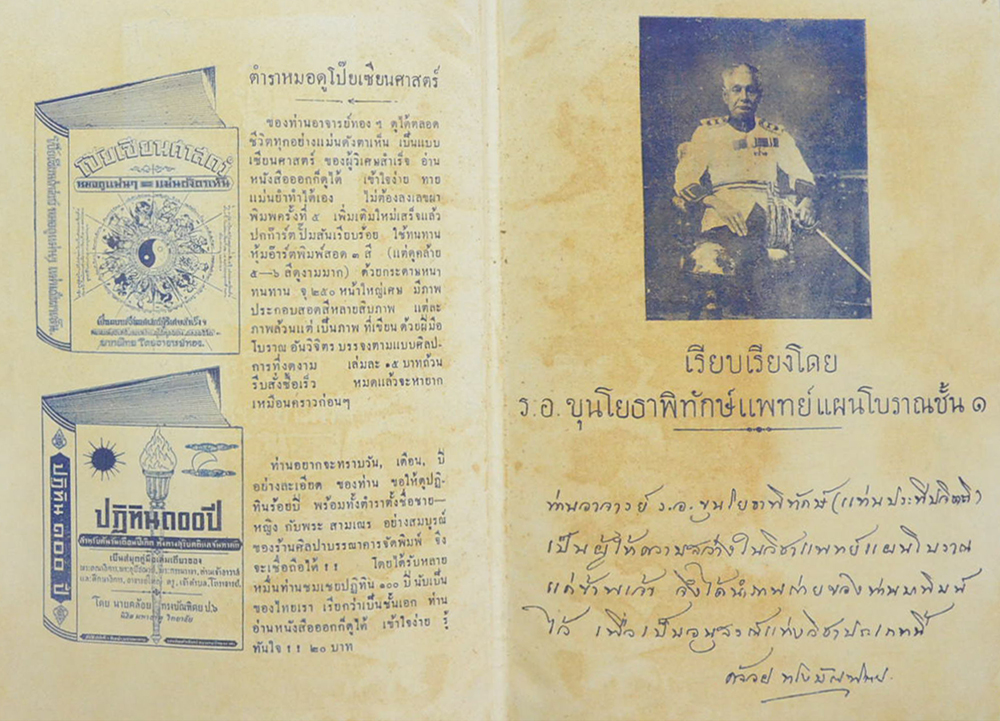 ตำราหมอดูโป๊ยเซียนศาสตร์
ของท่านอาจารย์ทอง ๆ ดูได้ตลอด
ชีวิตทุกอย่างแม่นดั่งตาเห็น เป็นแบบ
เซียนศาสตร์ ของผู้วิเศษสำเร็จ อ่าน
หนังสือออกก็ดูได้ เข้าใจง่าย ทาย
แม่นยำทำได้เอง ไม่ต้องลงเลขผา
พิมพ์ครั้งที่ ๕ เพิ่มเติมใหม่เสร็จแล้ว
ปกก๊าร์ด ปั๊มสันเรียบร้อย ใช้ทนทาน
หุ้มอ๊าร์ตพิมพ์สอด ๓ สี (แต่ดูคล้าย
๕—๖ สีดูงามมาก) ด้วยกระดาษหนา
ทนทาน จุ ๒๕๐ หน้าใหญ่เศษ มีภาพ
ประกอบสอดสีหลายสิบภาพ แต่ละ
ภาพล้วนแต่ เป็นภาพ ที่เขียน ด้วยฝีมือ
โบราณ อันวิจิตร บรรจงตามแบบศิลป-
การที่งดงาม เล่มละ ๑๕ บาทถ้วน
รีบสั่งซื้อเร็ว หมดแล้วจะหายาก
เหมือนคราวก่อนๆ
โป๊ยเซียนศาสตร์
หมอดูแม่นๆ แม่นยังตาเห็น
ท่านอยากจะทราบวัน, เดือน, ปี
อย่างละเอียด ของท่าน ขอให้ดูปฏิ-
ทินร้อยปี พร้อมทั้งตำราตั้งชื่อชาย-
หญิง กับพระ สามเณร อย่างสมบูรณ์
ของร้านศิลปาบรรณาคาร จัดพิมพ์ จึง
จะเชื่อถือได้ ! ! โดยได้รับหลาย
หมื่นท่านชมเชยปฏิทิน ๑๐๐ ปี นับเป็น
ของไทยเรา เรียกว่าเป็นชั้นเอก ท่าน
อ่านหนังสือออกก็ดูได้ เข้าใจง่าย รู้
ทันใจ ! ! ๒๐ บาท
ปฏิทิน ๑๐๐ ปี
ปฏิทิน๑๐๐ปี
เป็นสมุดคู่มือเดิมเกี่ยวของ
โดย นายคล้อย ทรงบัณฑิตย ป.๖
เรียบเรียงโดย
ร.อ. ขุนโยธาพิทักษ์แพทย์แผนโบราณชั้น ๑
ท่านอาจารย์ ร.อ. ขุนโยธาพิทักษ์ (แท่น
เป็นผู้ให้ความสว่างในวิชาแพทย์แผนโบราณ
แก่ข้าพเจ้า จึงได้นำภาพถ่ายของท่านมาพิมพ์
ไว้ เพื่อเป็นอนุสรณ์แห่งวิชา